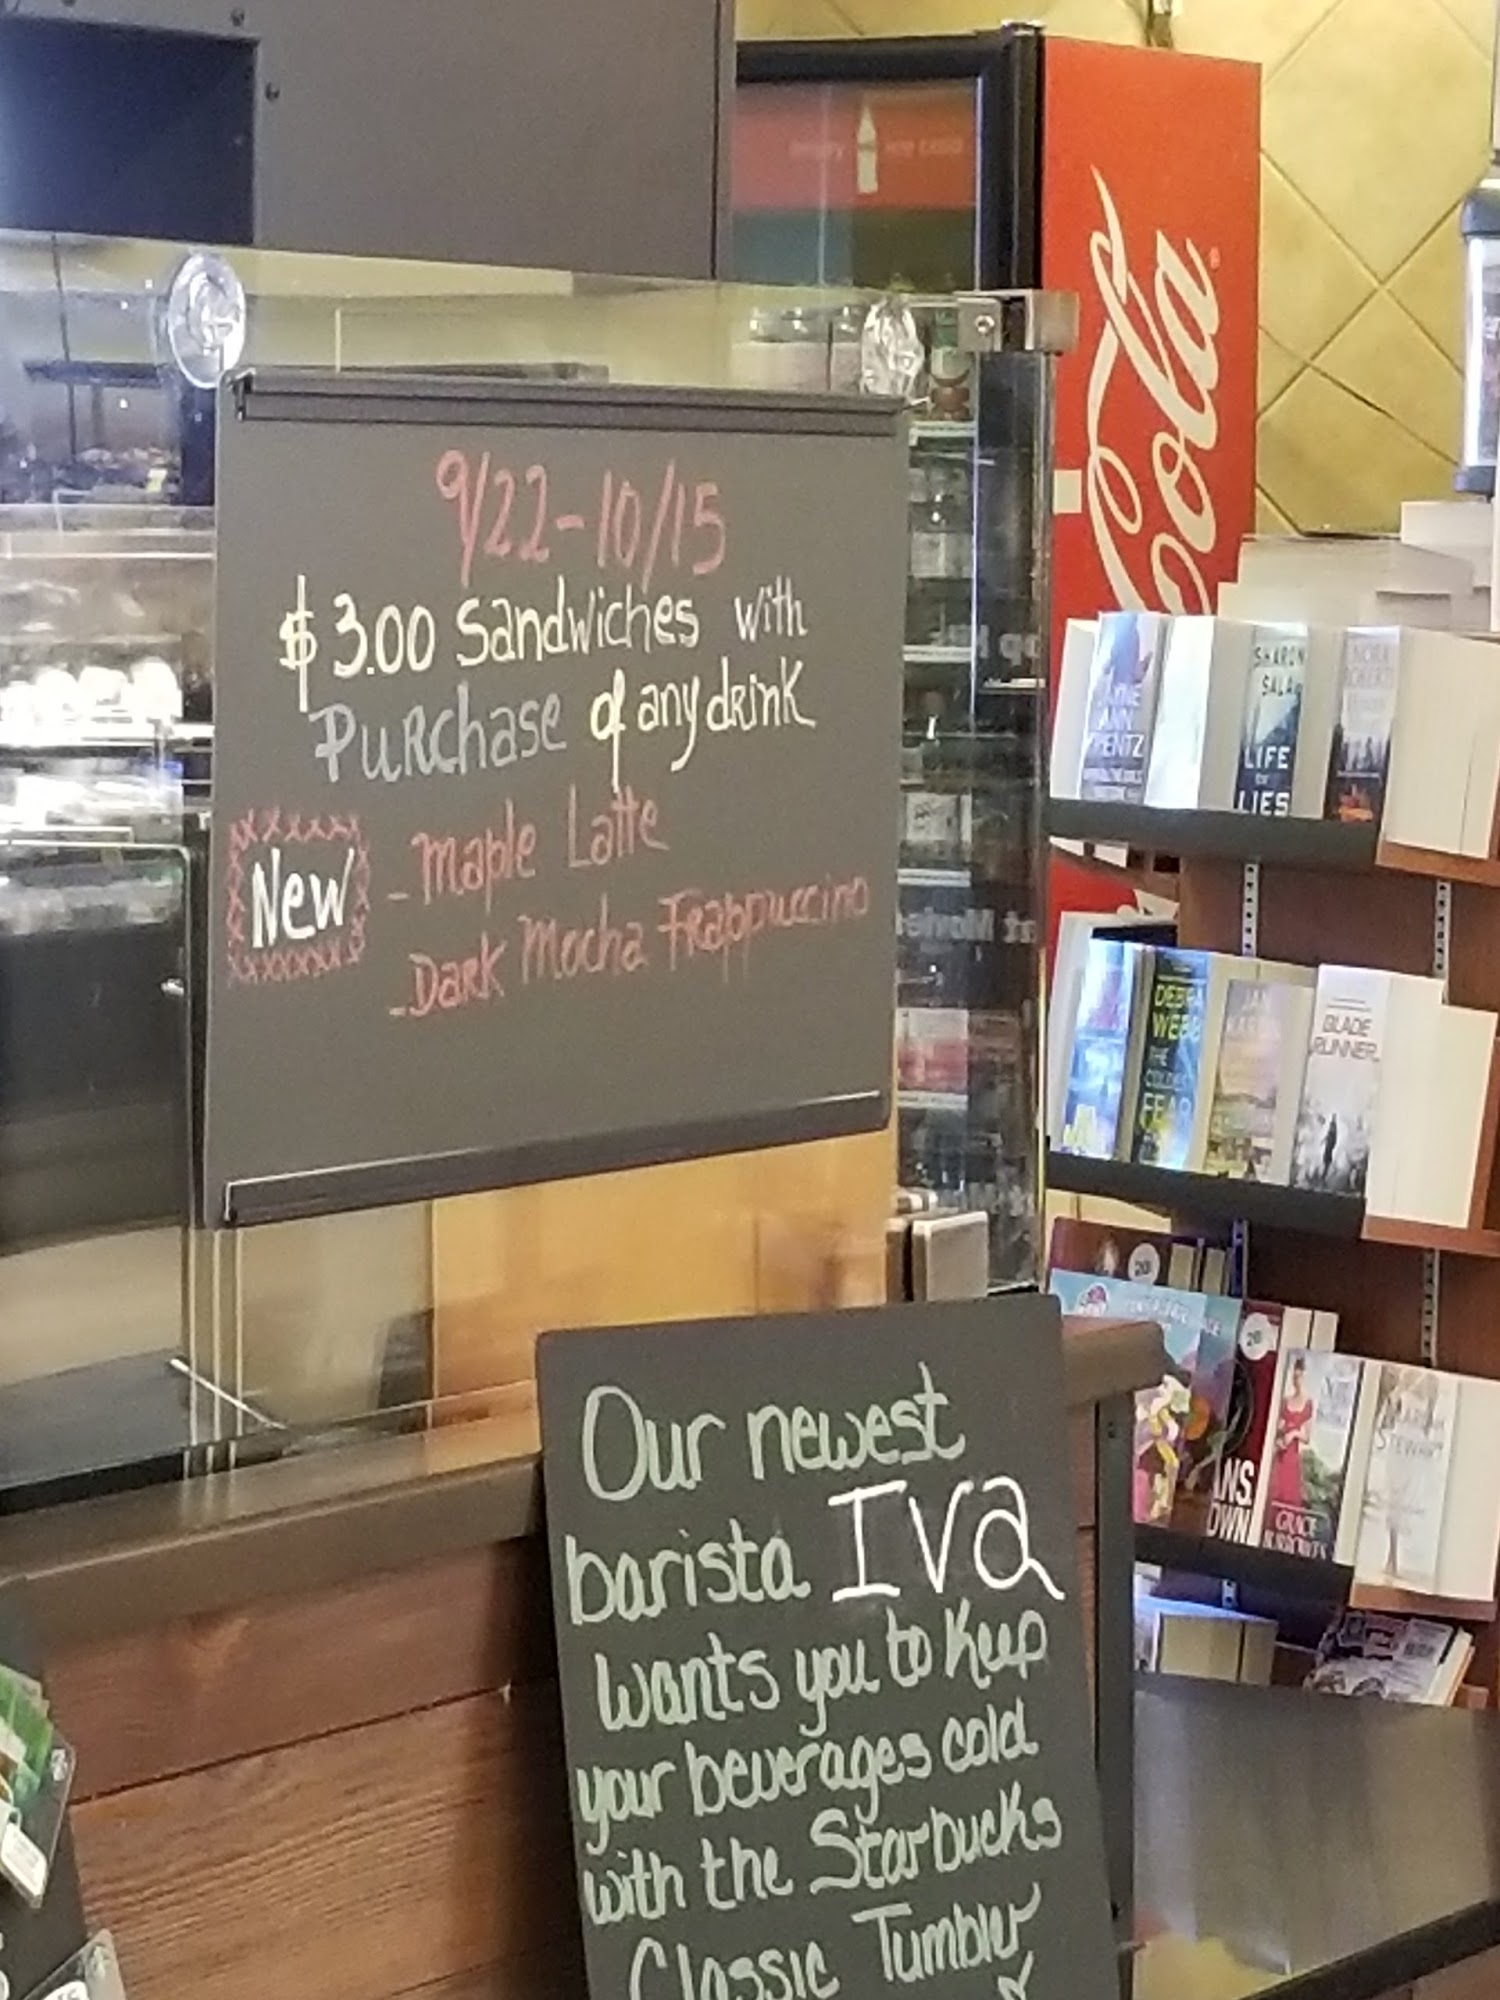 9/22-10/15
$3.00 Sandwiches with
Purchase of any drink
New
- Maple Latte
- Dark Mocha Frappuccino
Our newest
barista Iva
wants you to keep
your beverages cold
with the Starbucks
Classic Tumbler
Cola
SHARON
SALA
LIFE
OF
LIES
NORA
ROBERTS
JAYNE
ANN
KRENTZ
DEBRA
WEBB
THE
COLDEST
FEAR
JAN
KARON
BLADE
RUNNER
GRACE
BURROWES
STEWART